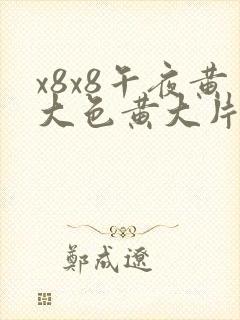 x8x8午夜黄
大色黄大片
鄭成遼